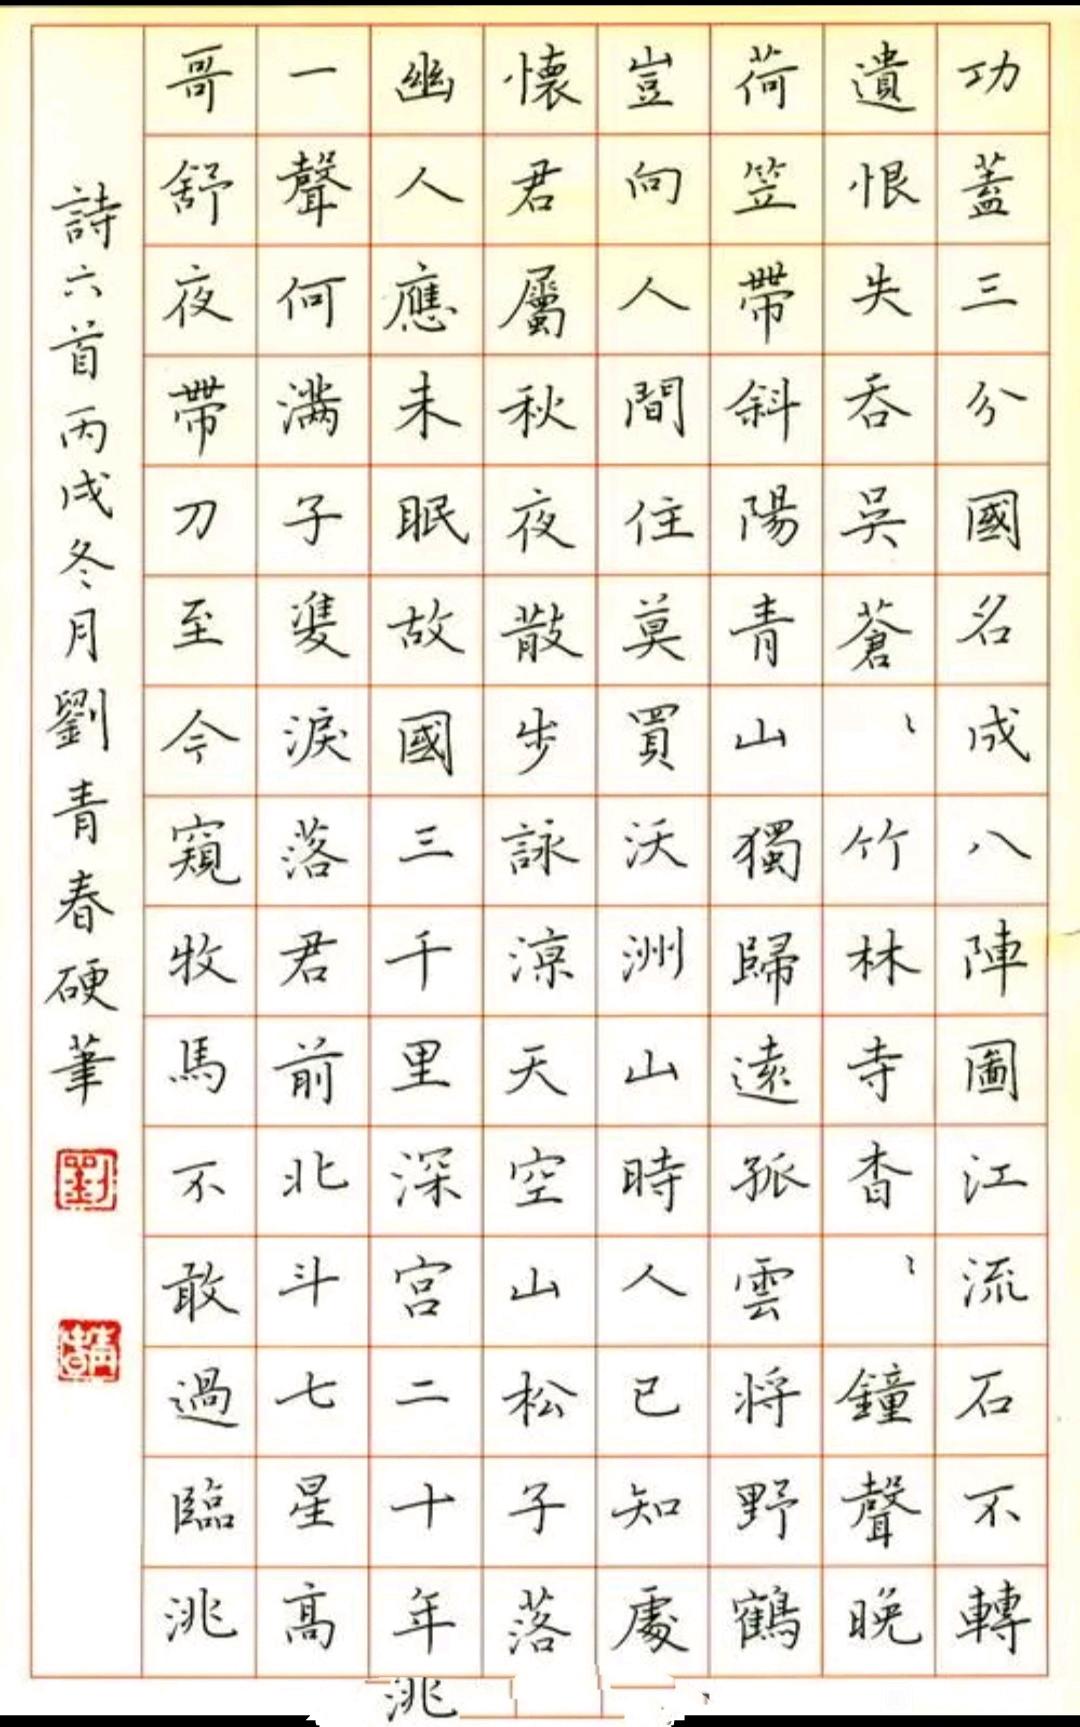 功蓋三分國名成八陣圖江流石不轉
遺恨失吞吳蒼〻竹林寺杳〻鐘聲晚
荷笠帶斜陽青山獨歸遠孤雲將野鶴
豈向人間住莫買沃洲山時人已知處
懷君屬秋夜散步詠涼天空山松子落
幽人應未眠故國三千里深宮二十年
一聲何滿子雙淚落君前北斗七星高
哥舒夜帶刀至今窺牧馬不敢過臨洮
詩六首丙戌冬月劉青春硬筆
劉
洮